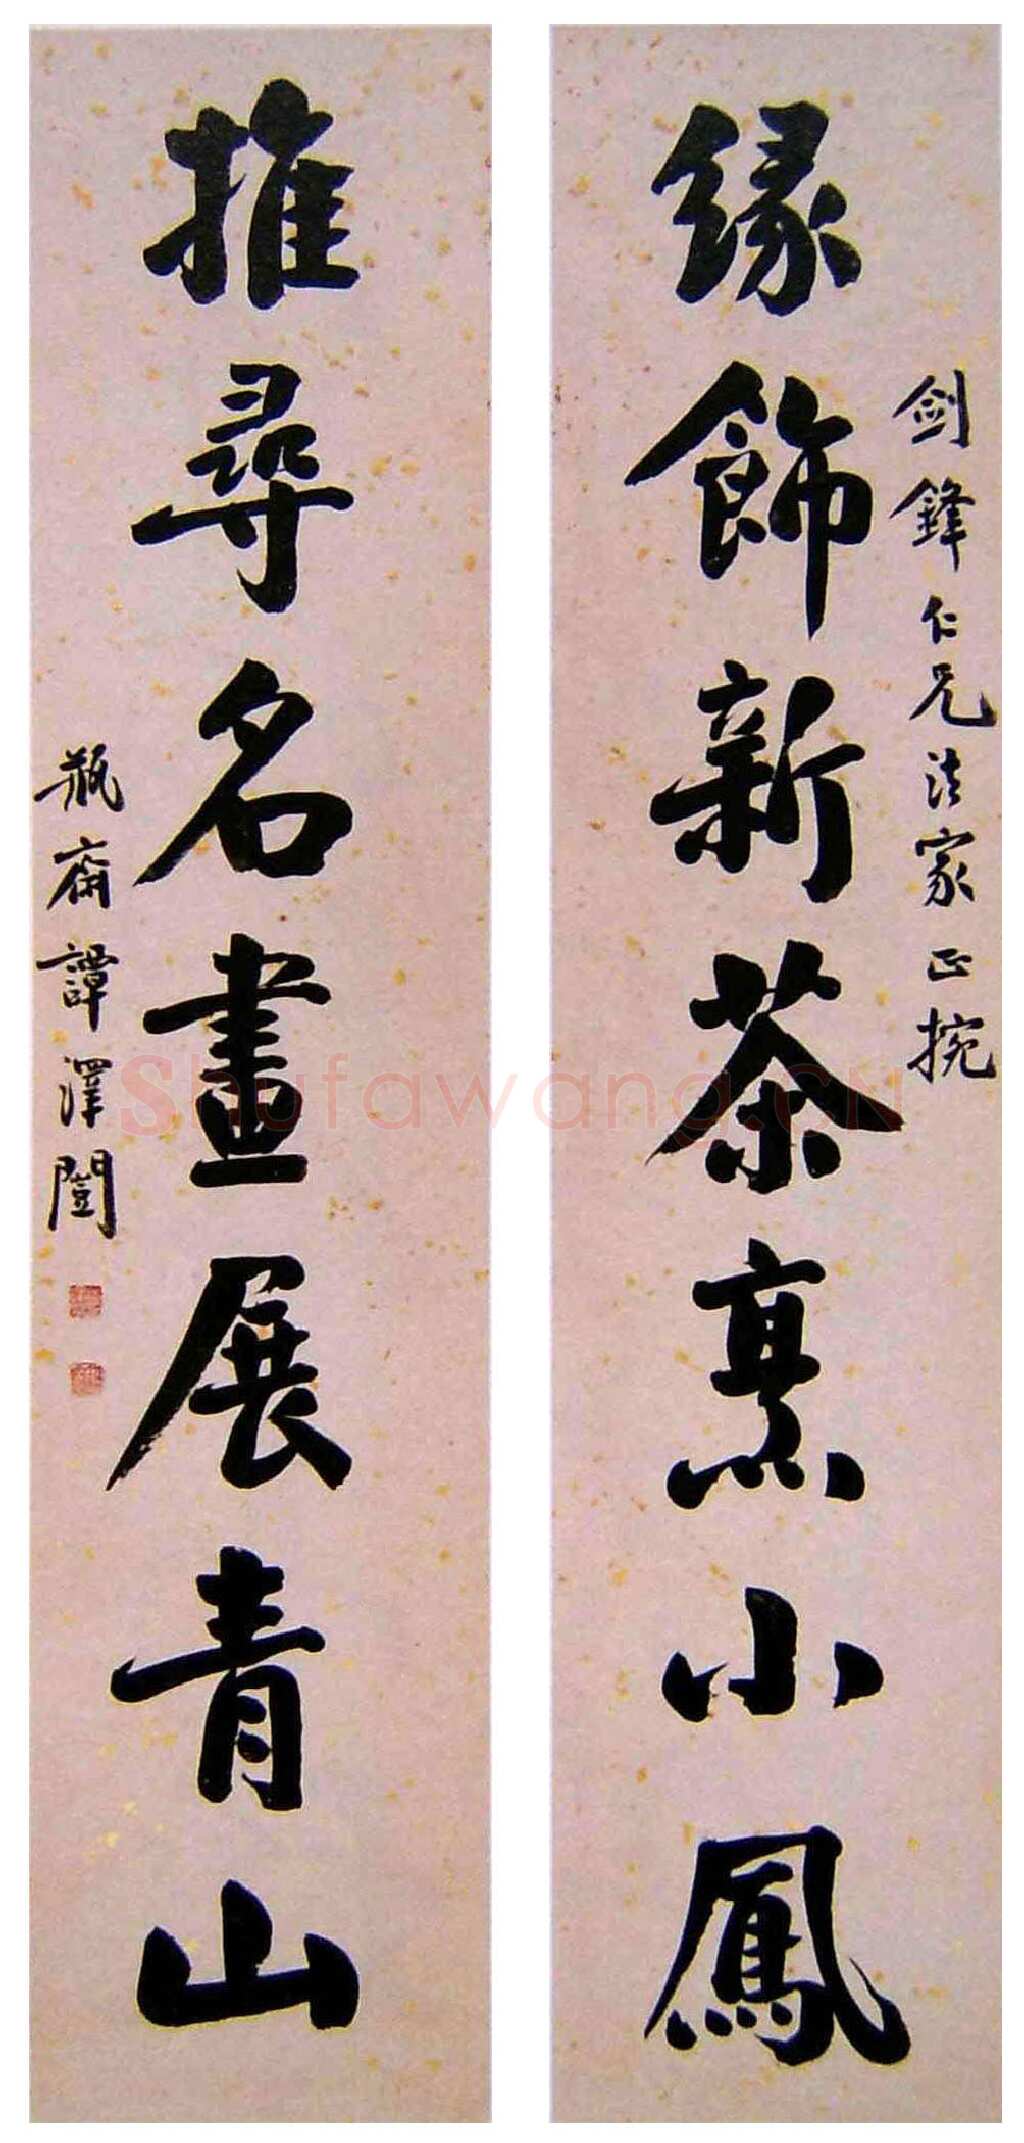 劍鋒仁兄法家正捥
緣飾新茶烹小鳳
推尋名畫展青山
瓶齋譚澤闓
Shufawang.CN